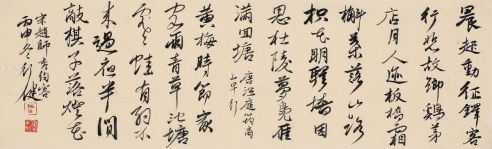 晨起動征鐸客
行悲故鄉鷄茅
店月人迹板橋霜
槲葉落山路
枳花明驛牆因
思杜陵夢鳧雁
滿回塘 唐溫庭筠商
山早行
黃梅時節家
家雨青草池塘
處處蛙有約不
來過夜半閒
敲棋子落燈花
宋趙師秀約客
丙申冬